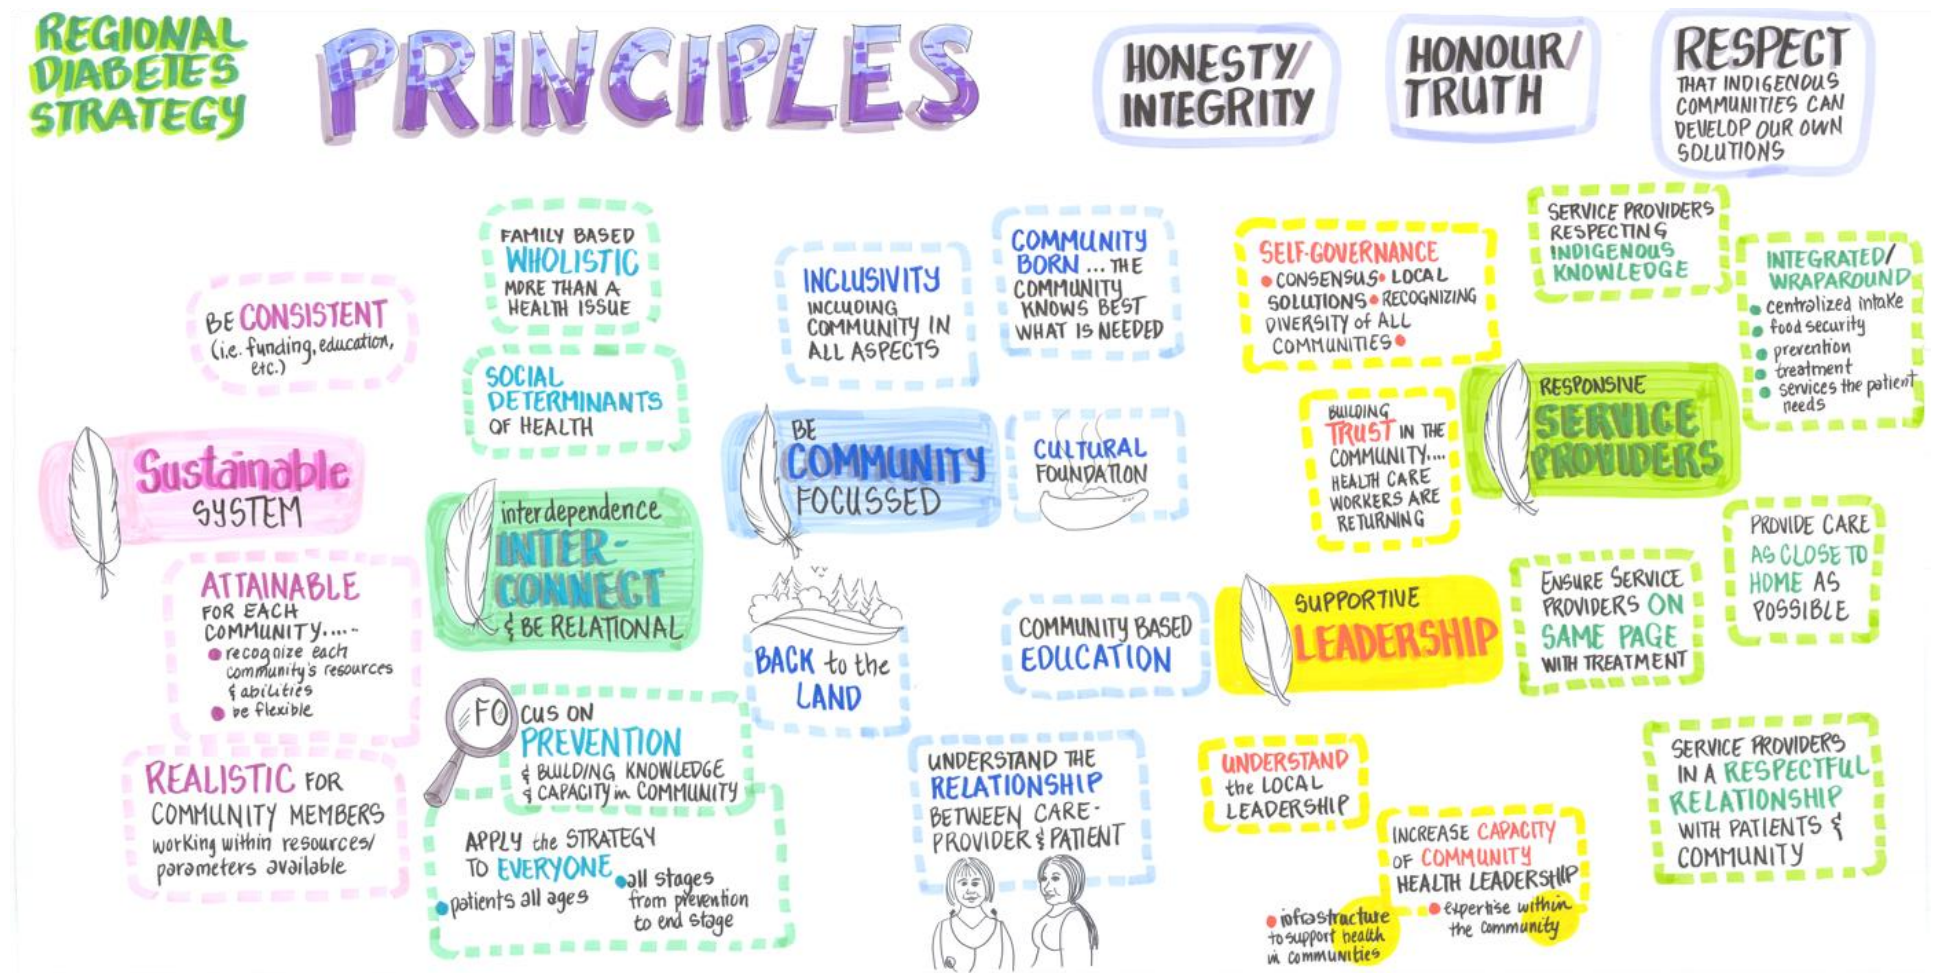 REGIONAL
DIABETES
STRATEGY
PRINCIPLES
HONESTY/
INTEGRITY
HONOUR/
TRUTH
RESPECT
THAT INDIGENOUS
COMMUNITIES CAN
DEVELOP OUR OWN
SOLUTIONS
BE CONSISTENT
(i.e. funding, education,
etc.)
Sustainable
SYSTEM
ATTAINABLE
FOR EACH
COMMUNITY.....
• recognize each
community's resources
& abilities
• be flexible
REALISTIC FOR
COMMUNITY MEMBERS
working within resources/
parameters available
FAMILY BASED
WHOLISTIC
MORE THAN A
HEALTH ISSUE
SOCIAL
DETERMINANTS
OF HEALTH
interdependence
INTER-
CONNECT
& BE RELATIONAL
FOCUS ON
PREVENTION
& BUILDING KNOWLEDGE
& CAPACITY in COMMUNITY
APPLY the STRATEGY
TO EVERYONE
• patients all ages
• all stages
from prevention
to end stage
INCLUSIVITY
INCLUDING
COMMUNITY IN
ALL ASPECTS
COMMUNITY
BORN ... THE
COMMUNITY
KNOWS BEST
WHAT IS NEEDED
BE
COMMUNITY
FOCUSSED
CULTURAL
FOUNDATION
BACK to the
LAND
COMMUNITY BASED
EDUCATION
UNDERSTAND THE
RELATIONSHIP
BETWEEN CARE-
PROVIDER & PATIENT
SELF-GOVERNANCE
• CONSENSUS • LOCAL
SOLUTIONS • RECOGNIZING
DIVERSITY of ALL
COMMUNITIES •
BUILDING
TRUST IN THE
COMMUNITY....
HEALTH CARE
WORKERS ARE
RETURNING
SUPPORTIVE
LEADERSHIP
UNDERSTAND
the LOCAL
LEADERSHIP
INCREASE CAPACITY
OF COMMUNITY
HEALTH LEADERSHIP
• infrastructure
to support health
in communities
• expertise within
the community
SERVICE PROVIDERS
RESPECTING
INDIGENOUS
KNOWLEDGE
INTEGRATED/
WRAPAROUND
• centralized intake
• food security
• prevention
• treatment
• services the patient
needs
RESPONSIVE
SERVICE
PROVIDERS
PROVIDE CARE
AS CLOSE TO
HOME AS
POSSIBLE
ENSURE SERVICE
PROVIDERS ON
SAME PAGE
WITH TREATMENT
SERVICE PROVIDERS
IN A RESPECTFUL
RELATIONSHIP
WITH PATIENTS &
COMMUNITY